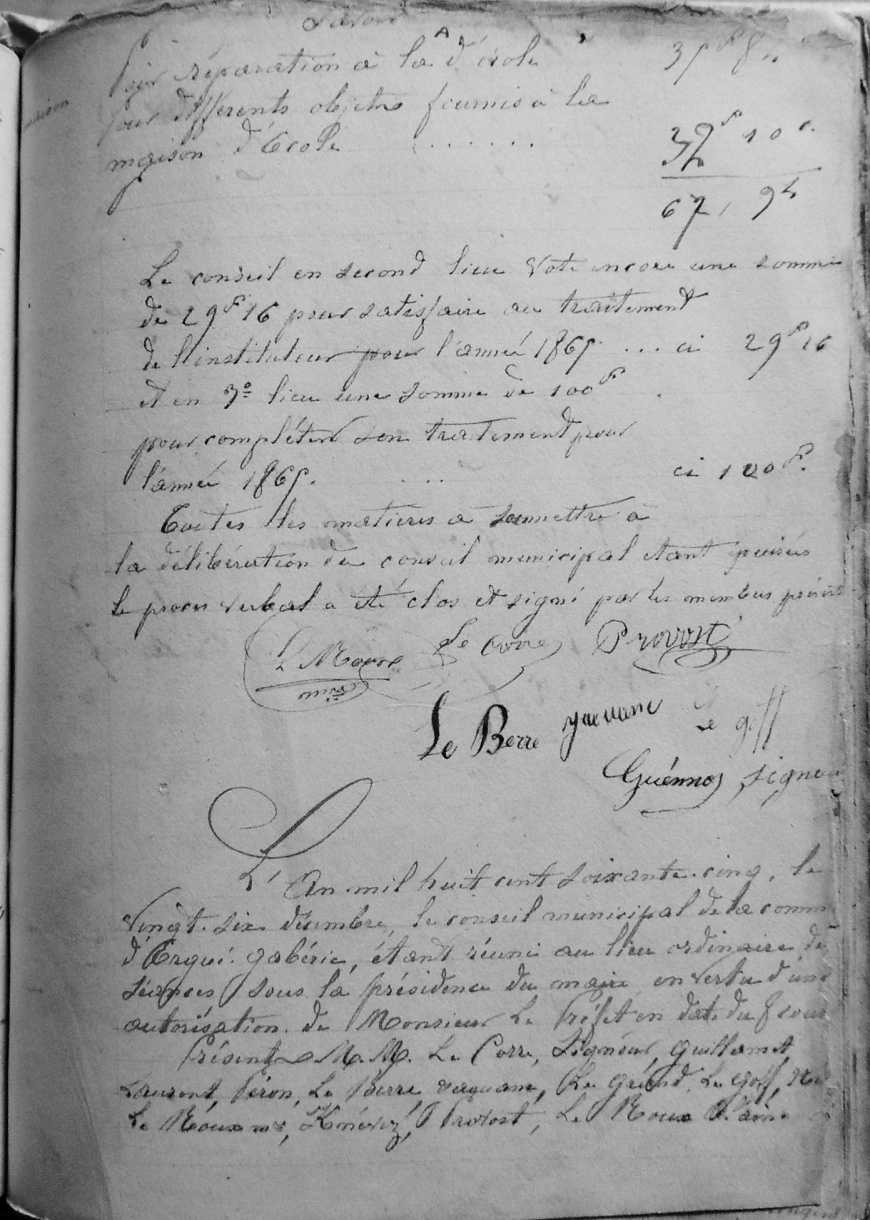 Savoir
Pour réparation à la d'école 35f 8
maison
pour différents objets fournis à la
maison d'Ecole ...... 32f 10c
67, 94
Le conseil en second lieu vote encore une somme
de 29f 16 pour satisfaire au traitement
de l'instituteur pour l'année 1865 ... ci 29f 16
et en 3º lieu une somme de 100f
pour compléter son traitement pour
l'année 1865. ... ci 100f.
Toutes les matières a soumettre à
la délibération du conseil municipal étant épuisées
le procès verbal a été clos et signé par les membres présents
Provost
Le Berre Le goff
Guénno signeur
L'An mil huit cent soixante-cinq, le
vingt-six décembre, le conseil municipal de la comm
d'Ergué-gabéric, étant réuni au lieu ordinaire de
séances sous la présidence du maire en vertu d'une
autorisation de Monsieur Le Préfet en date du 8
Présents M.M. Le Corre, Signeur, Guillamet
Laurent, Péron, Le Berre, Le grand, Le goff,
Le Roux, Provost, Le Roux